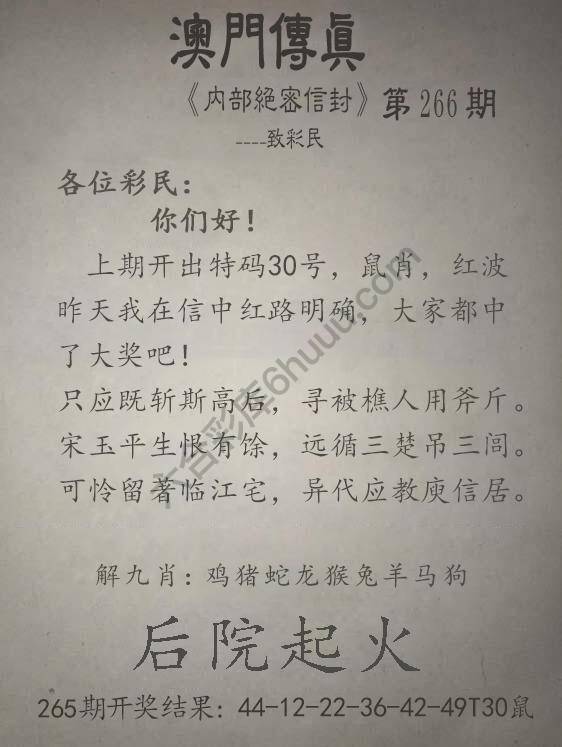 澳門傳真
《内部絕密信封》第266期
----致彩民
各位彩民：
你们好！
上期开出特码30号，鼠肖，红波
昨天我在信中红路明确，大家都中
了大奖吧！
只应既斩斯高后，寻被樵人用斧斤。
宋玉平生恨有馀，远循三楚吊三闾。
可怜留著临江宅，异代应教庾信居。
六合彩库6huuu.com
解九肖：鸡猪蛇龙猴兔羊马狗
后院起火
265期开奖结果：44-12-22-36-42-49T30鼠